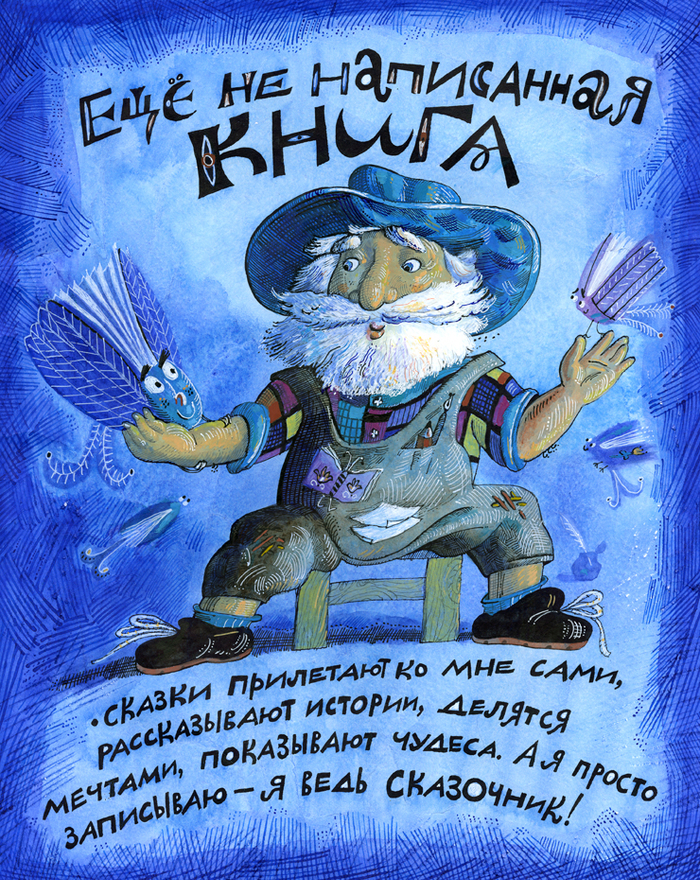 Ещё не написанная
книга
• Сказки прилетают ко мне сами,
рассказывают истории, делятся
мечтами, показывают чудеса. А я просто
записываю – я ведь сказочник!